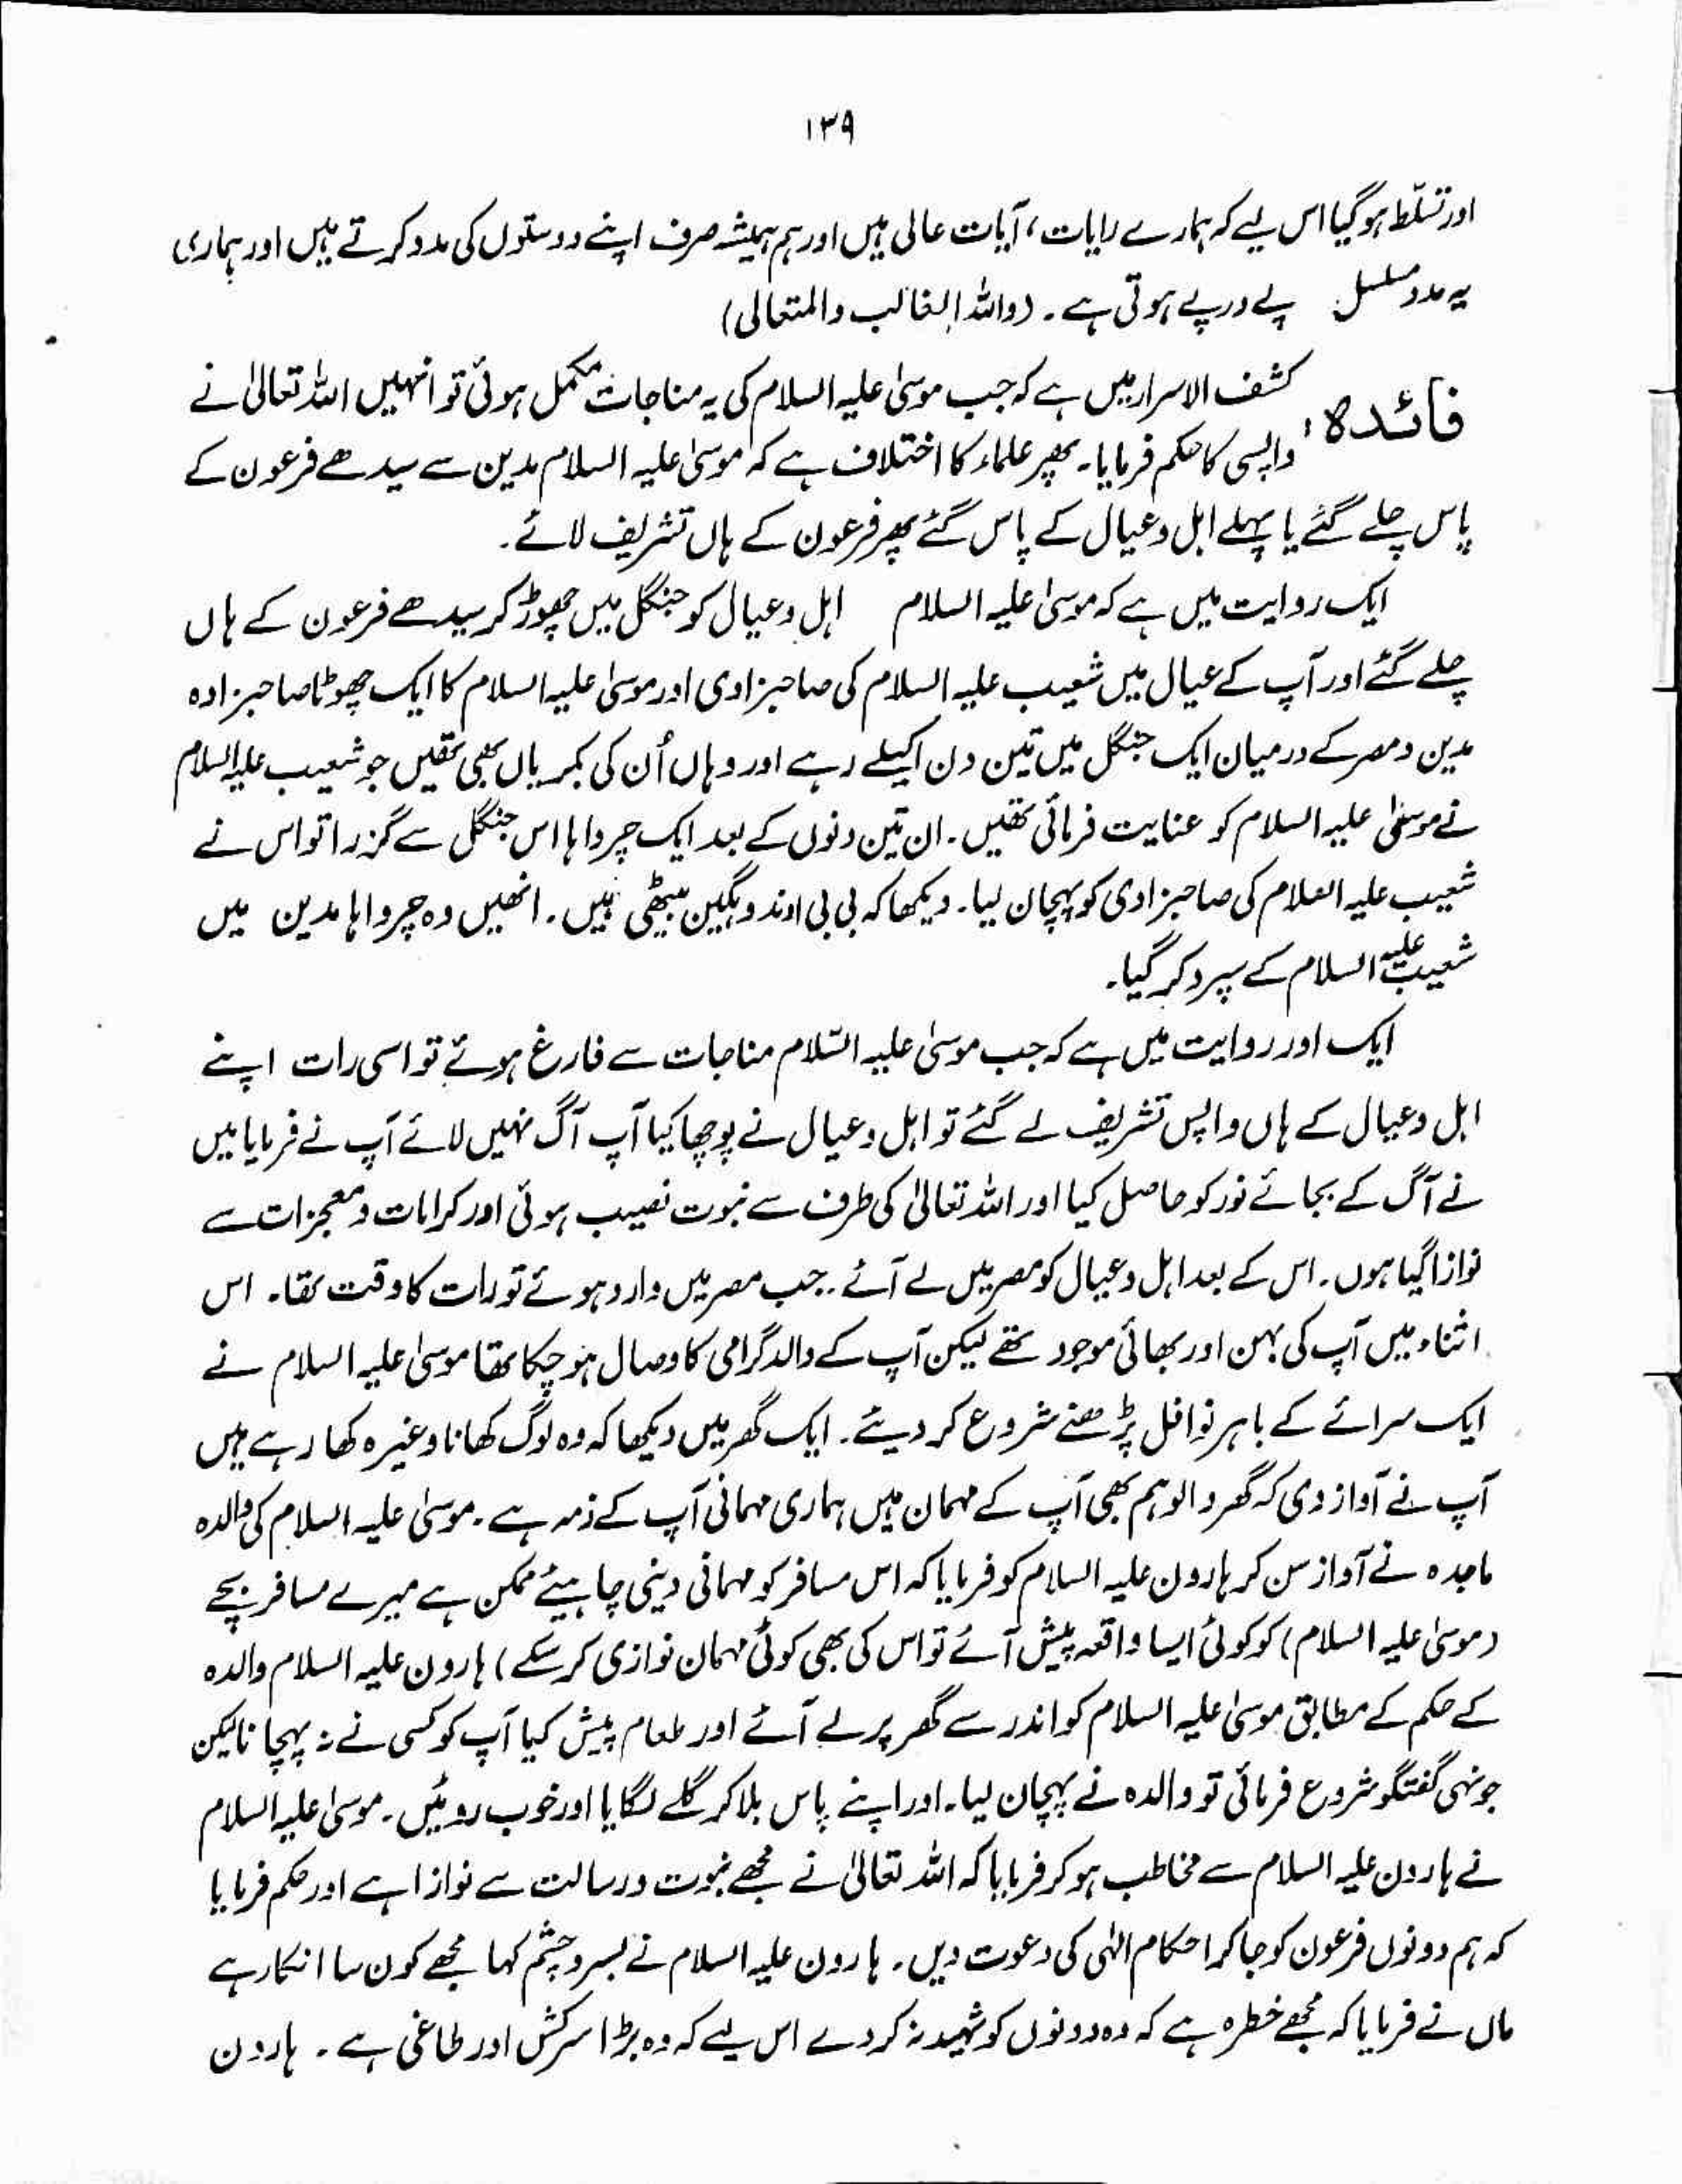 ۱۳۹
اور تسلّط ہوگیا اس لیے کہ ہمارے رایات، آیات عالی ہیں اور ہم ہمیشہ صرف اپنے دوستوں کی مدد کرتے ہیں اور ہماری
یہ مدد مسلسل پے درپے ہوتی ہے۔ (واللہ الغالب والمتعالی)
فائدہ: کشف الاسرار میں ہے کہ جب موسیٰ علیہ السلام کی یہ مناجات مکمل ہوئی تو انہیں اللہ تعالیٰ نے
واپسی کا حکم فرمایا۔ پھر علماء کا اختلاف ہے کہ موسیٰ علیہ السلام مدین سے سیدھے فرعون کے
پاس چلے گئے یا پہلے اہل و عیال کے پاس گئے پھر فرعون کے ہاں تشریف لائے۔
ایک روایت میں ہے کہ موسیٰ علیہ السلام اہل و عیال کو جنگل میں چھوڑ کر سیدھے فرعون کے ہاں
چلے گئے اور آپ کے عیال میں شعیب علیہ السلام کی صاحبزادی اور موسیٰ علیہ السلام کا ایک چھوٹا صاحبزادہ
مدین و مصر کے درمیان ایک جنگل میں تین دن اکیلے رہے اور وہاں اُن کی بکریاں بھی تھیں جو شعیب علیہ السلام
نے موسیٰ علیہ السلام کو عنایت فرمائی تھیں۔ ان تین دنوں کے بعد ایک چرواہا اس جنگل سے گزرا تو اس نے
شعیب علیہ السلام کی صاحبزادی کو پہچان لیا۔ دیکھا کہ بی بی اندوہگین بیٹھی ہیں۔ انھیں وہ چرواہا مدین میں
شعیب علیہ السلام کے سپرد کر گیا۔
ایک اور روایت میں ہے کہ جب موسیٰ علیہ السّلام مناجات سے فارغ ہوئے تو اسی رات اپنے
اہل و عیال کے ہاں واپس تشریف لے گئے تو اہل و عیال نے پوچھا کیا آپ آگ نہیں لائے آپ نے فرمایا میں
نے آگ کے بجائے نور کو حاصل کیا اور اللہ تعالیٰ کی طرف سے نبوت نصیب ہوئی اور کرامات و معجزات سے
نوازا گیا ہوں۔ اس کے بعد اہل و عیال کو مصر میں لے آئے۔ جب مصر میں وارد ہوئے تو رات کا وقت تھا۔ اس
اثناء میں آپ کی بہن اور بھائی موجود تھے لیکن آپ کے والد گرامی کا وصال ہو چکا تھا موسیٰ علیہ السلام نے
ایک سرائے کے باہر نوافل پڑھنے شروع کر دیئے۔ ایک گھر میں دیکھا کہ وہ لوگ کھانا وغیرہ کھا رہے ہیں
آپ نے آواز دی کہ گھر والو ہم بھی آپ کے مہمان ہیں ہماری مہمانی آپ کے ذمہ ہے۔ موسیٰ علیہ السلام کی والدہ
ماجدہ نے آواز سن کر ہارون علیہ السلام کو فرمایا کہ اس مسافر کو مہمانی دینی چاہیئے ممکن ہے میرے مسافر بچے
(موسیٰ علیہ السلام) کو کوئی ایسا واقعہ پیش آئے تو اس کی بھی کوئی مہمان نوازی کر سکے) ہارون علیہ السلام والدہ
کے حکم کے مطابق موسیٰ علیہ السلام کو اندر سے گھر پر لے آئے اور طعام پیش کیا آپ کو کسی نے نہ پہچانا لیکن
جونہی گفتگو شروع فرمائی تو والدہ نے پہچان لیا۔ اور اپنے پاس بلا کر گلے لگایا اور خوب روئیں۔ موسیٰ علیہ السلام
نے ہارون علیہ السلام سے مخاطب ہو کر فرمایا کہ اللہ تعالیٰ نے مجھے نبوت و رسالت سے نوازا ہے اور حکم فرمایا
کہ ہم دونوں فرعون کو جا کر احکام الہٰی کی دعوت دیں۔ ہارون علیہ السلام نے بسر و چشم کہا مجھے کون سا انکار ہے
ماں نے فرمایا کہ مجھے خطرہ ہے کہ وہ دونوں کو شہید نہ کر دے اس لیے کہ وہ بڑا سرکش اور طاغی ہے۔ ہارون